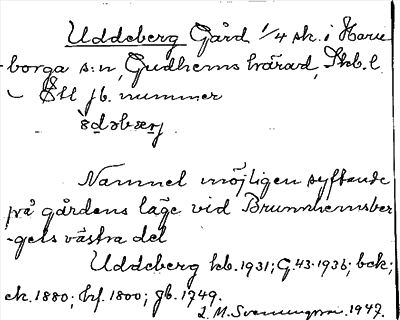 Uddeberg Gård 1/4 sk. i Marie
borga s:n, Gudhems härad, Skb. l.
Ett jb. nummer
Namnet möjligen syftande
på gårdens läge vid Brunnhemsber
-gets västra del
Uddeberg kb. 1931; G. 43. 1936; bck;
ek. 1880; hf. 1800; jb. 1749.
L. M. Svenungsson. 1947.